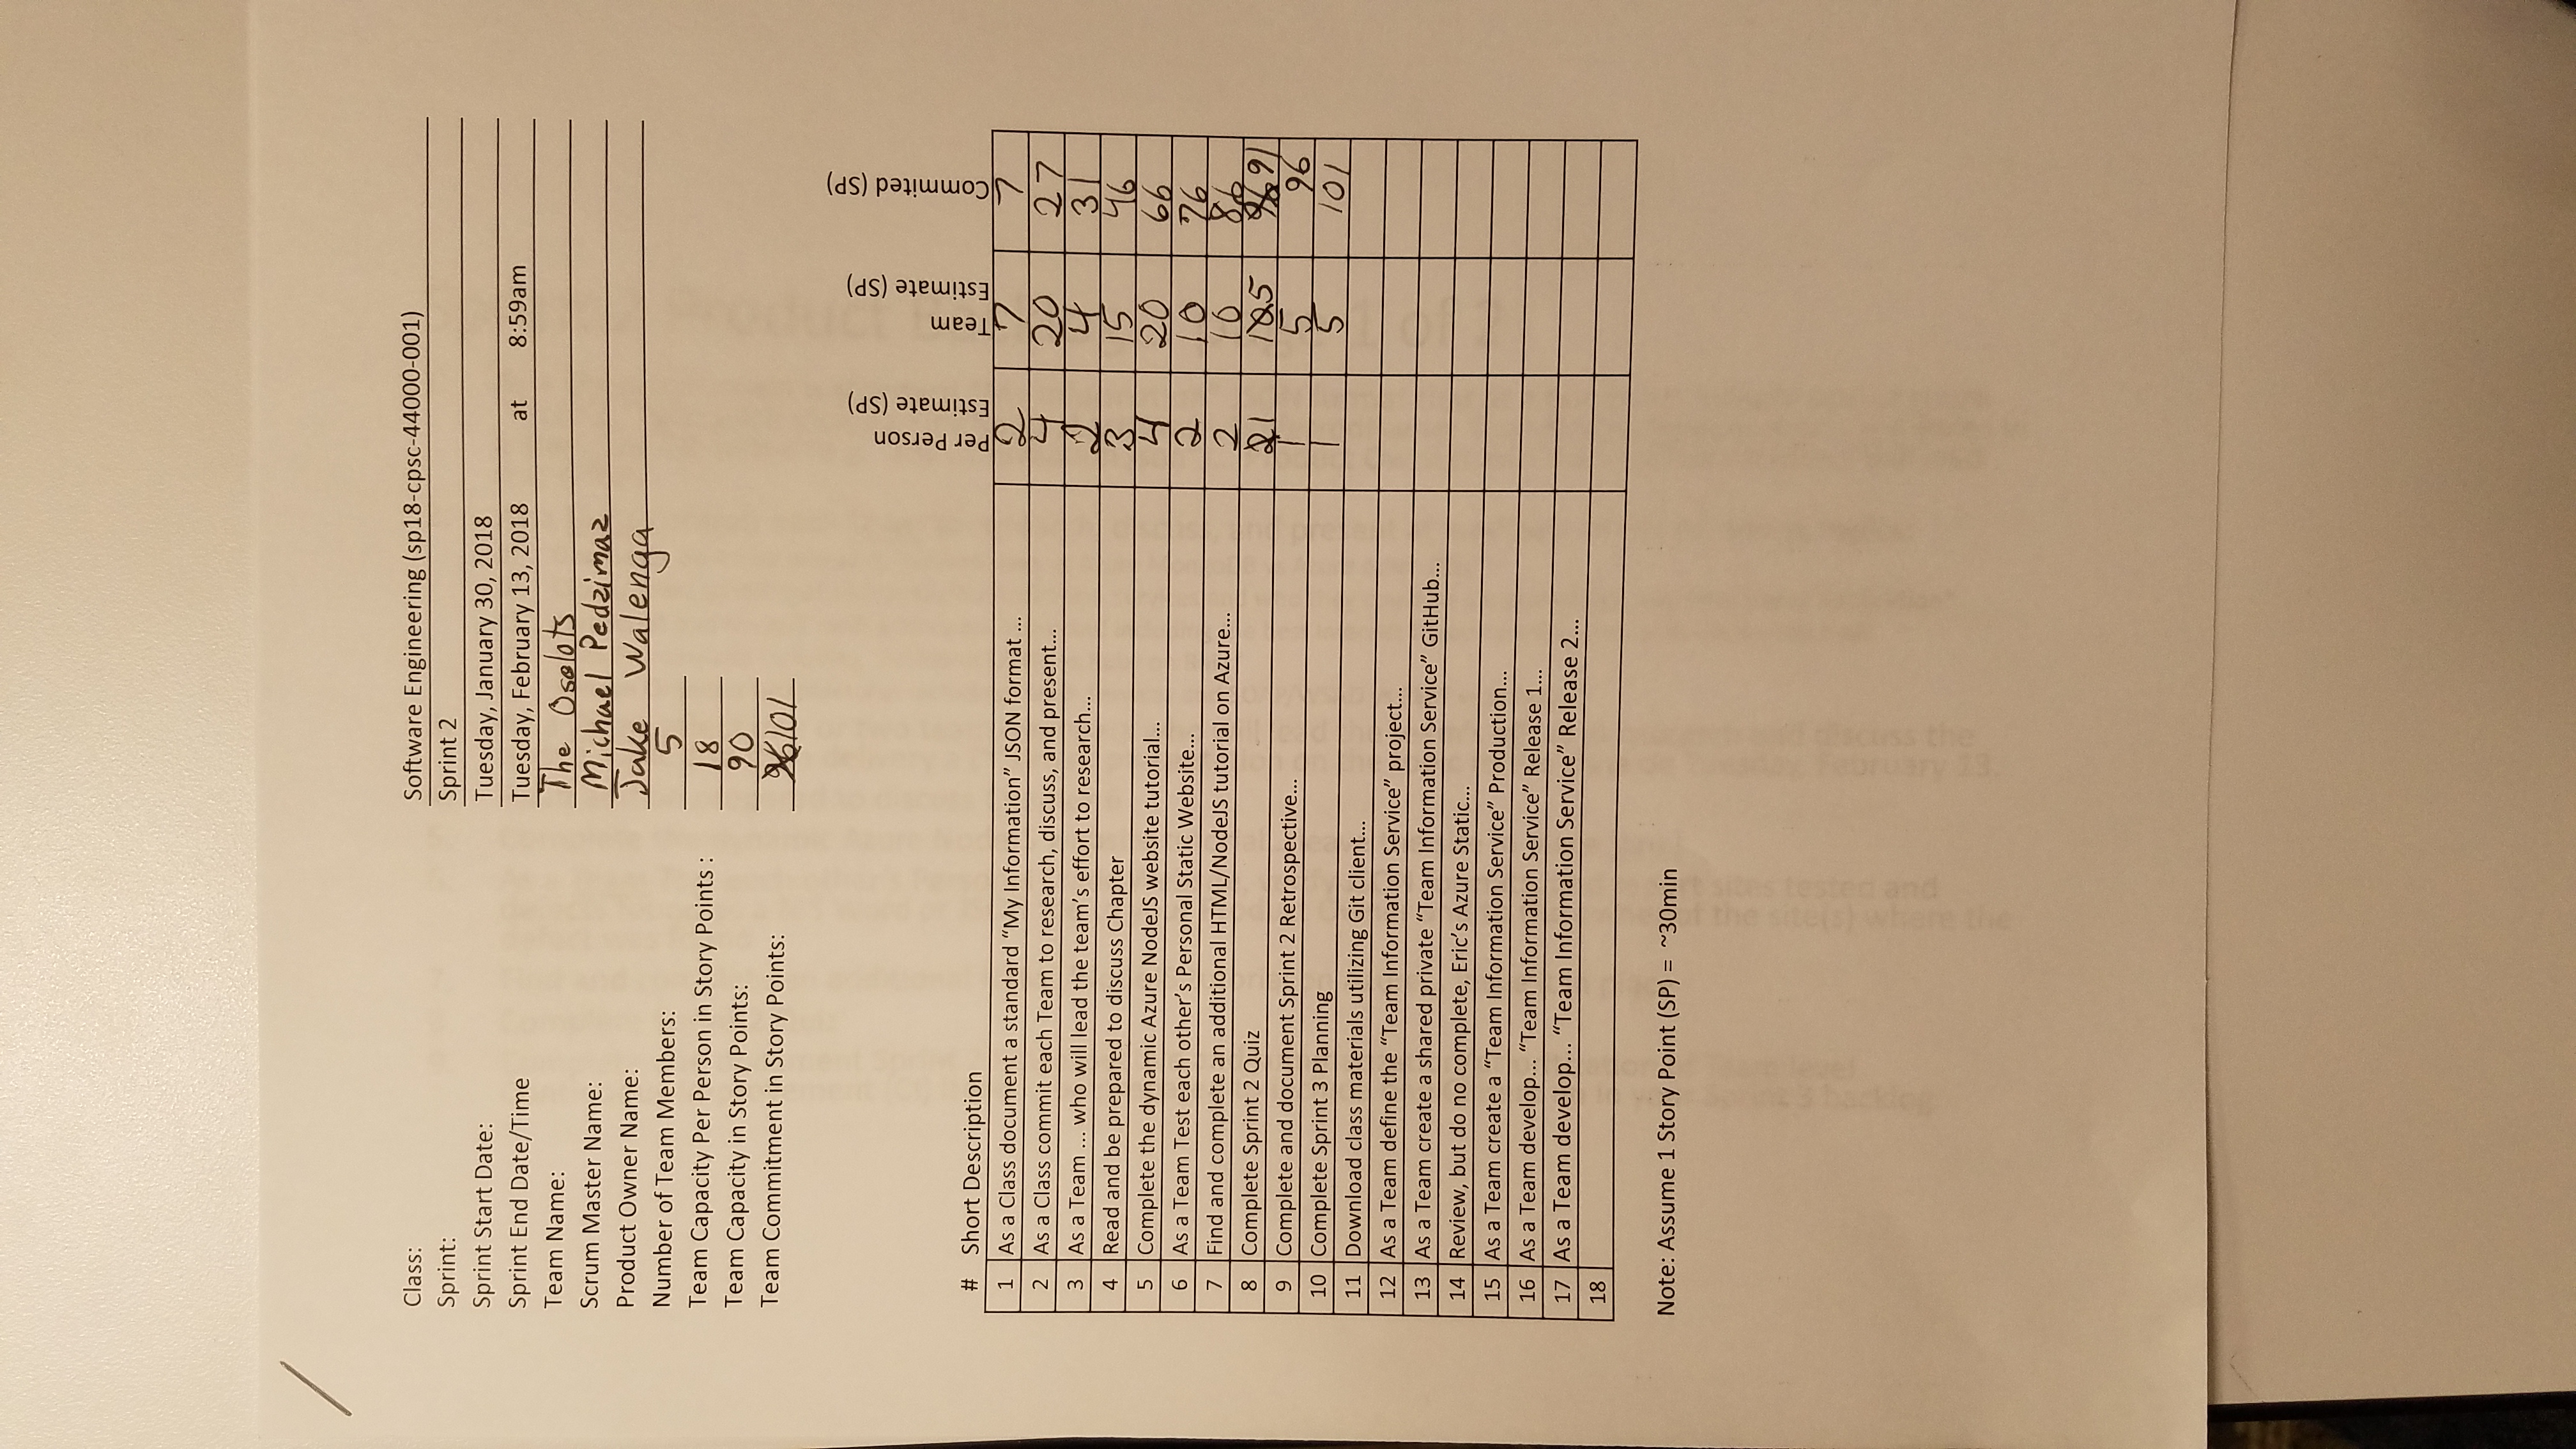 Class: Software Engineering (sp18-cpsc-44000-001)
Sprint: Sprint 2
Sprint Start Date: Tuesday, January 30, 2018
Sprint End Date/Time Tuesday, February 13, 2018 at 8:59am
Team Name: The Oselots
Scrum Master Name: Michael Pedzimaz
Product Owner Name: Jake Walenga
Number of Team Members: 5
Team Capacity Per Person in Story Points : 18
Team Capacity in Story Points: 90
Team Commitment in Story Points: 96 101
# Short Description Per Person Estimate (SP) Team Estimate (SP) Commited (SP)
1 As a Class document a standard “My Information” JSON format ... 2 7 7
2 As a Class commit each Team to research, discuss, and present... 4 20 27
3 As a Team ... who will lead the team’s effort to research... 2 4 31
4 Read and be prepared to discuss Chapter 3 15 46
5 Complete the dynamic Azure NodeJS website tutorial... 4 20 66
6 As a Team Test each other’s Personal Static Website... 2 10 76
7 Find and complete an additional HTML/NodeJS tutorial on Azure... 2 10 86
8 Complete Sprint 2 Quiz 2 1 10 5 96 91
9 Complete and document Sprint 2 Retrospective... 1 5 96
10 Complete Sprint 3 Planning 1 5 101
11 Download class materials utilizing Git client...
12 As a Team define the “Team Information Service” project...
13 As a Team create a shared private “Team Information Service” GitHub...
14 Review, but do no complete, Eric’s Azure Static...
15 As a Team create a “Team Information Service” Production...
16 As a Team develop... “Team Information Service” Release 1...
17 As a Team develop... “Team Information Service” Release 2...
18
Note: Assume 1 Story Point (SP) = ~30min